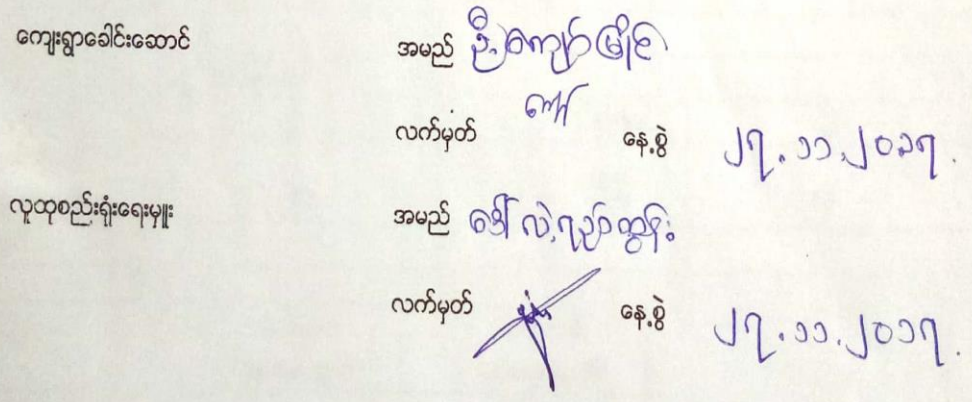 ကျေးရွာခေါင်းဆောင် အမည် ဦးကျော်မြိုင်
လက်မှတ် နေ့စွဲ ၂၇.၁၁.၂၀၁၇.
လူထုစည်းရုံးရေးမှူး အမည် ဒေါ်လဲ့ရည်ထွန်း
လက်မှတ် နေ့စွဲ ၂၇.၁၁.၂၀၁၇.